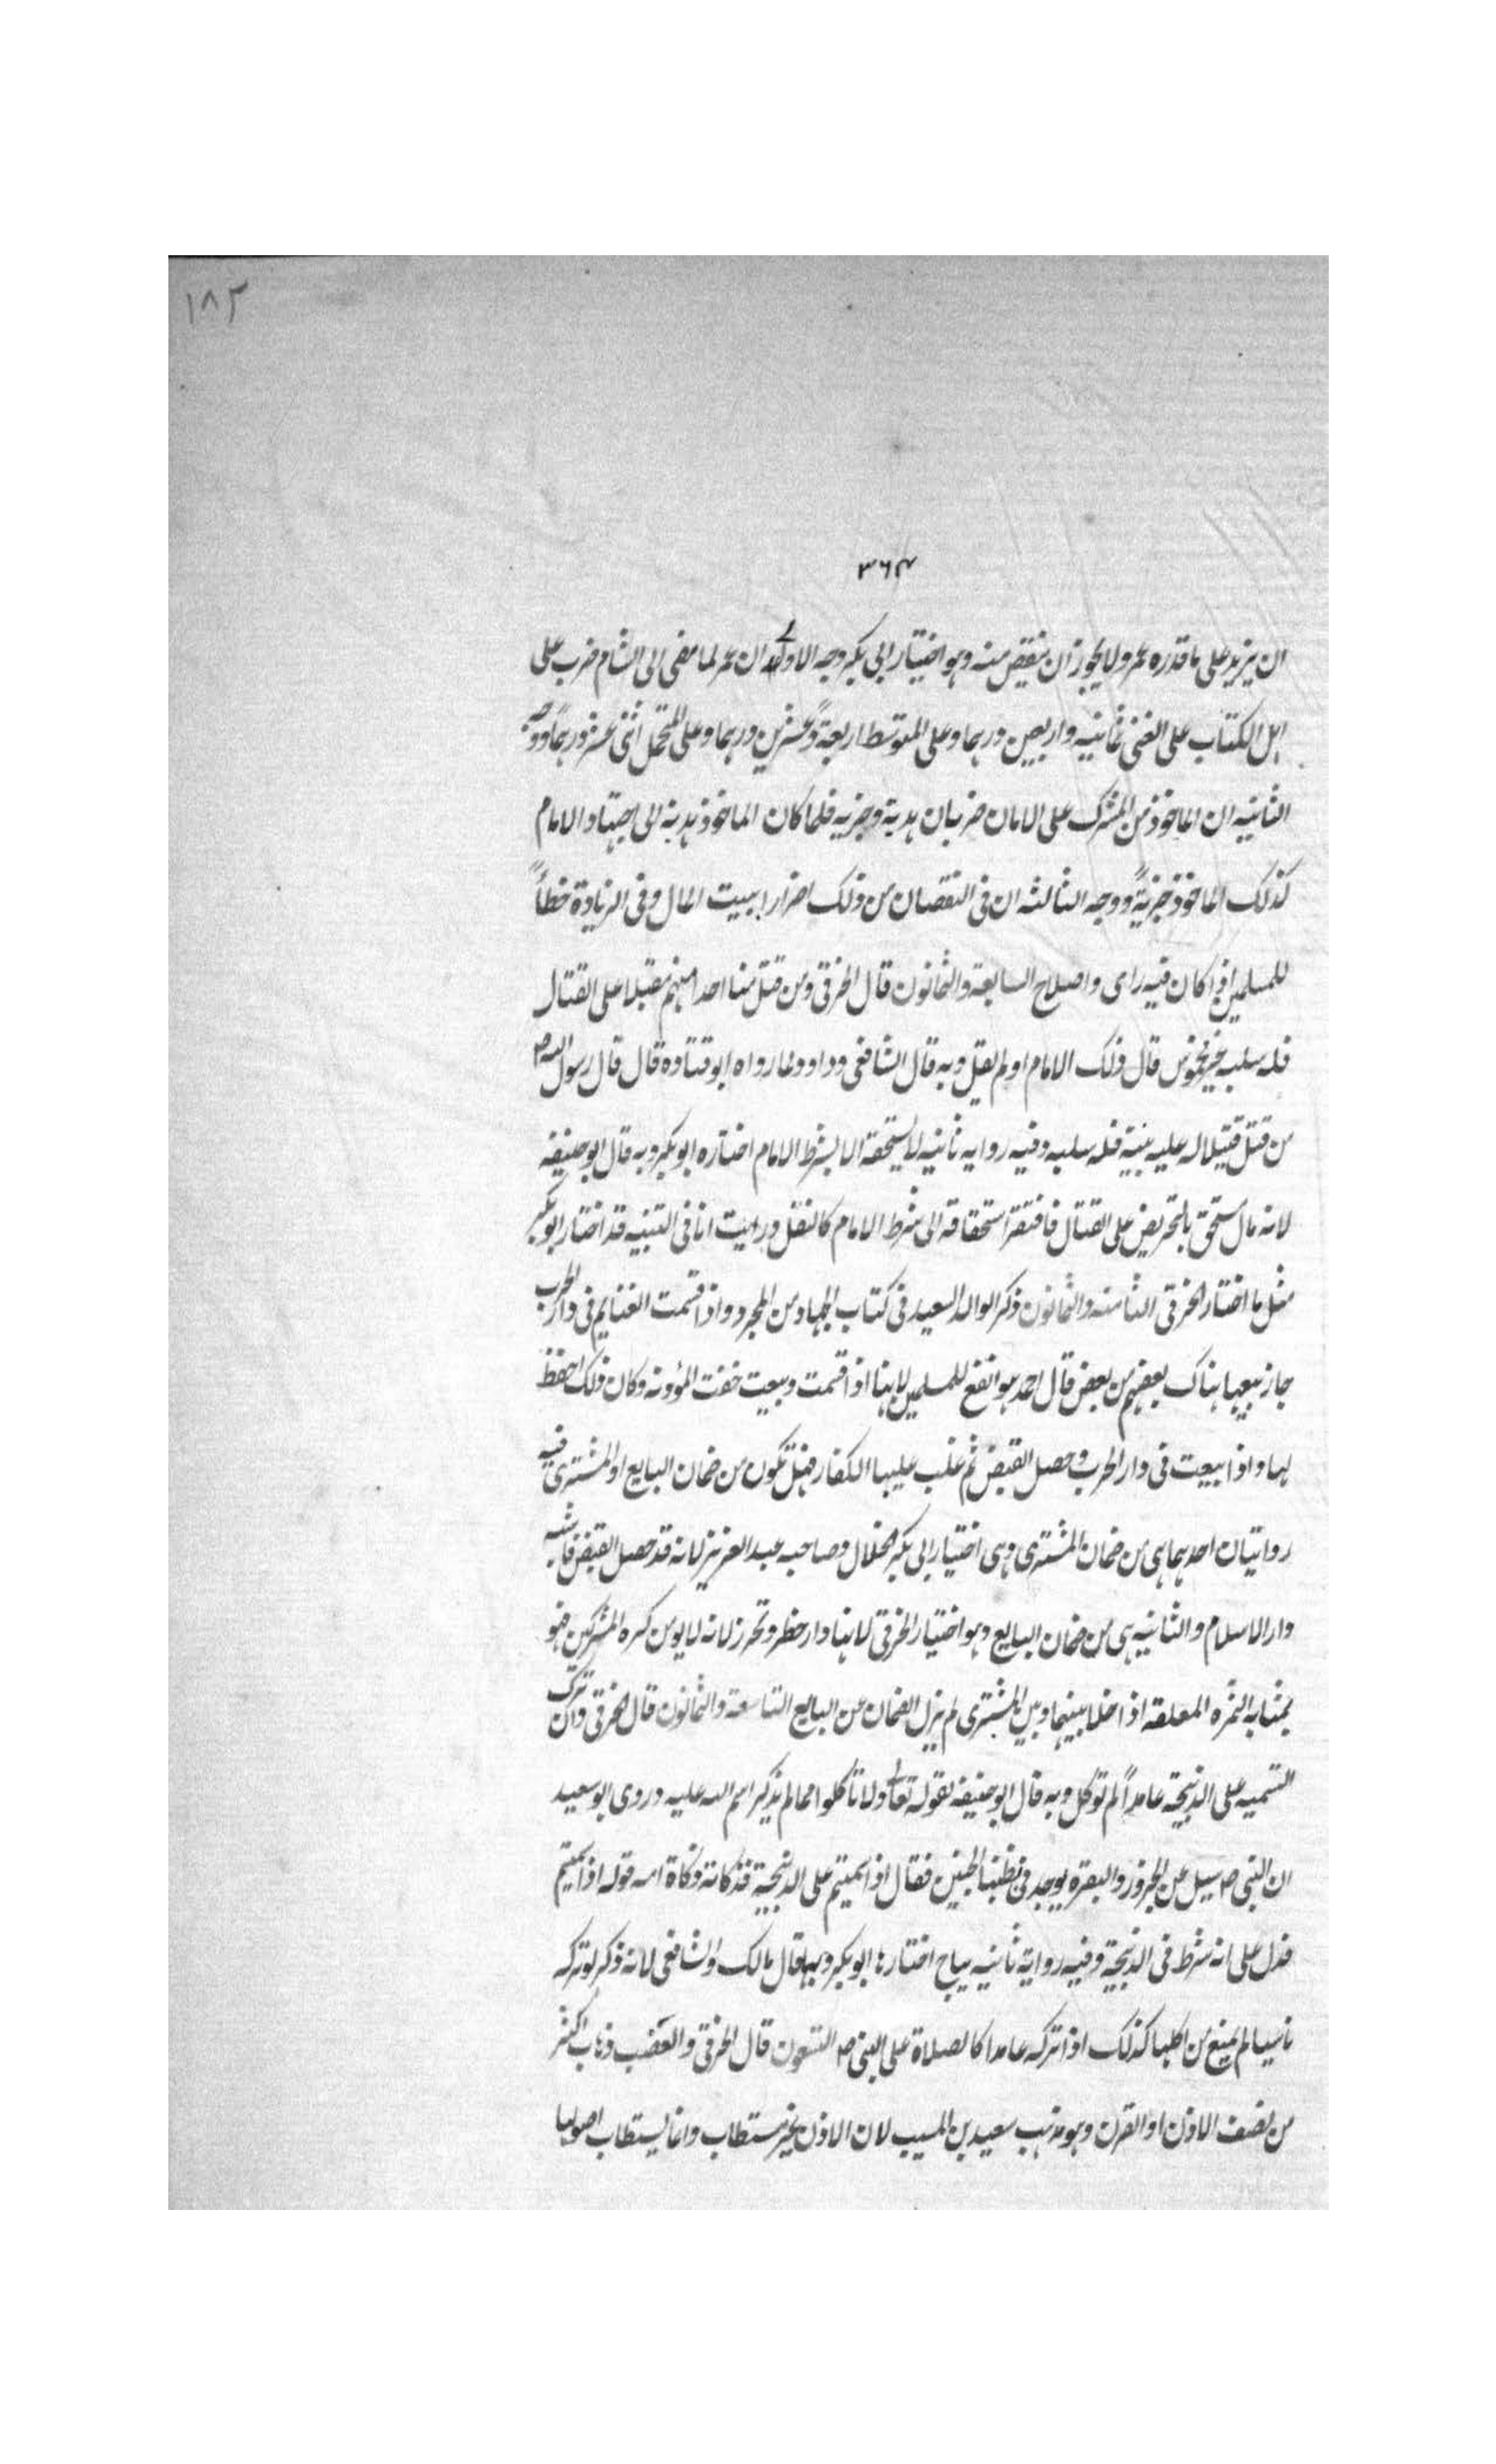 ١٨٢
٣٦٤
ان يزيد على ما قدره عمر ولا يجوز ان ينقص منه وهو اختيار ابى بكر وجه الاولى ان عمر لما مضى الى الشام ضرب على
اهل الكتاب على الغنى ثمانيه واربعين درهما وعلى المتوسط اربعةً وعشرين درهما وعلى المتحمل اثنى عشر درهماً ووجه
الثانيه ان الماخوذ من المشرك على الامان ضربان هدية وجزيه فلما كان الماخوذ هدية الى اجتهاد الامام
كذلك الماخوذ جزيةً ووجه الثالثه ان فى النقصان من ذلك اضرارا ببيت المال وفى الزيادة خطأً
للمسلمين اذا كان فيه راى واصلاح السابعة والثمانون قال الخرقى ومن قتل منا احدا منهم مقبلا على القتال
فله سلبه غير مخموس قال ذلك الامام او لم يقل وبه قال الشافعى وداود لما رواه ابو قتاده قال قال رسول الله ص
من قتل قتيلا له عليه بينة فله سلبه وفيه روايه ثانيه لا يستحقه الا بشرط الامام اختاره ابو بكر وبه قال ابو حنيفه
لانه مال مستحق بالتحريض على القتال فافتقر استحقاقه الى شرط الامام كالنفل ورايت انا فى التنبيه قد اختار ابو بكر
مثل ما اختار الخرقى الثامنه والثمانون ذكر الوالد السعيد فى كتاب الجهاد من المجرد واذا قسمت الغنايم فى دار الحرب
جاز بيعها هناك بعضهم من بعض قال احمد هو انفع للمسلمين لانها اذا قسمت وبيعت خفت المؤونه وكان ذلك احفظ
لها واذا بيعت فى دار الحرب وحصل القبض ثم غلب عليها الكفار فهل تكون من ضمان البايع او المشترى فيه
روايتان احدهما هى من ضمان المشترى وهى اختيار ابى بكر الخلال وصاحبه عبد العزيز لانه قد حصل القبض فاشبه
دار الاسلام والثانيه هى من ضمان البايع وهو اختيار الخرقى لانها دار خطر وتحرز لانه لا يومن كره المشركين فهو
بمثابه الثمره المعلقه اذا خلا بينها وبين المشترى لم يزل الضمان عن البايع التاسعة والثمانون قال الخرقى وان ترك
التسميه على الذبيحة عامداً لم توكل وبه قال ابو حنيفه لقوله تعالى ولا تاكلوا مما لم يذكر اسم الله عليه وروى ابو سعيد
ان النبى ص سيل عن الجزور والبقره يوجد فى بطنها الجنين فقال اذا سميتم على الذبيحة فذكاته ذكاة امه قوله اذا سميتم
فدل على انه شرط فى الذبيحة وفيه رواية ثانيه يباح اختارها ابو بكر وبها قال مالك والشافعى لانه ذكر لو تركه
ناسيا لم يمنع من اكلها كذلك اذا تركه عامدا كالصلاة على النبى ص التسعون قال الخرقى والعضب ذهاب اكثر
من نصف الاذن او القرن وهو مذهب سعيد بن المسيب لان الاذن غير مستطاب وانما يستطاب اصولها